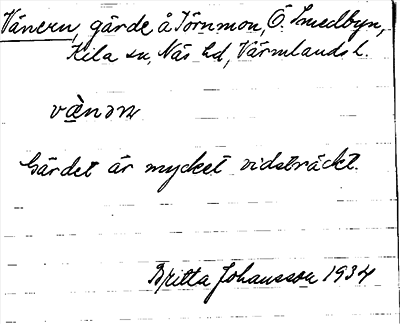 Vänern, gärde å Törnmon, Ö. Smedbyn,
Kila sn, Näs hd, Värmlands l.
vä̀nən
Gärdet är mycket vidsträckt.
Britta Johansson 1934